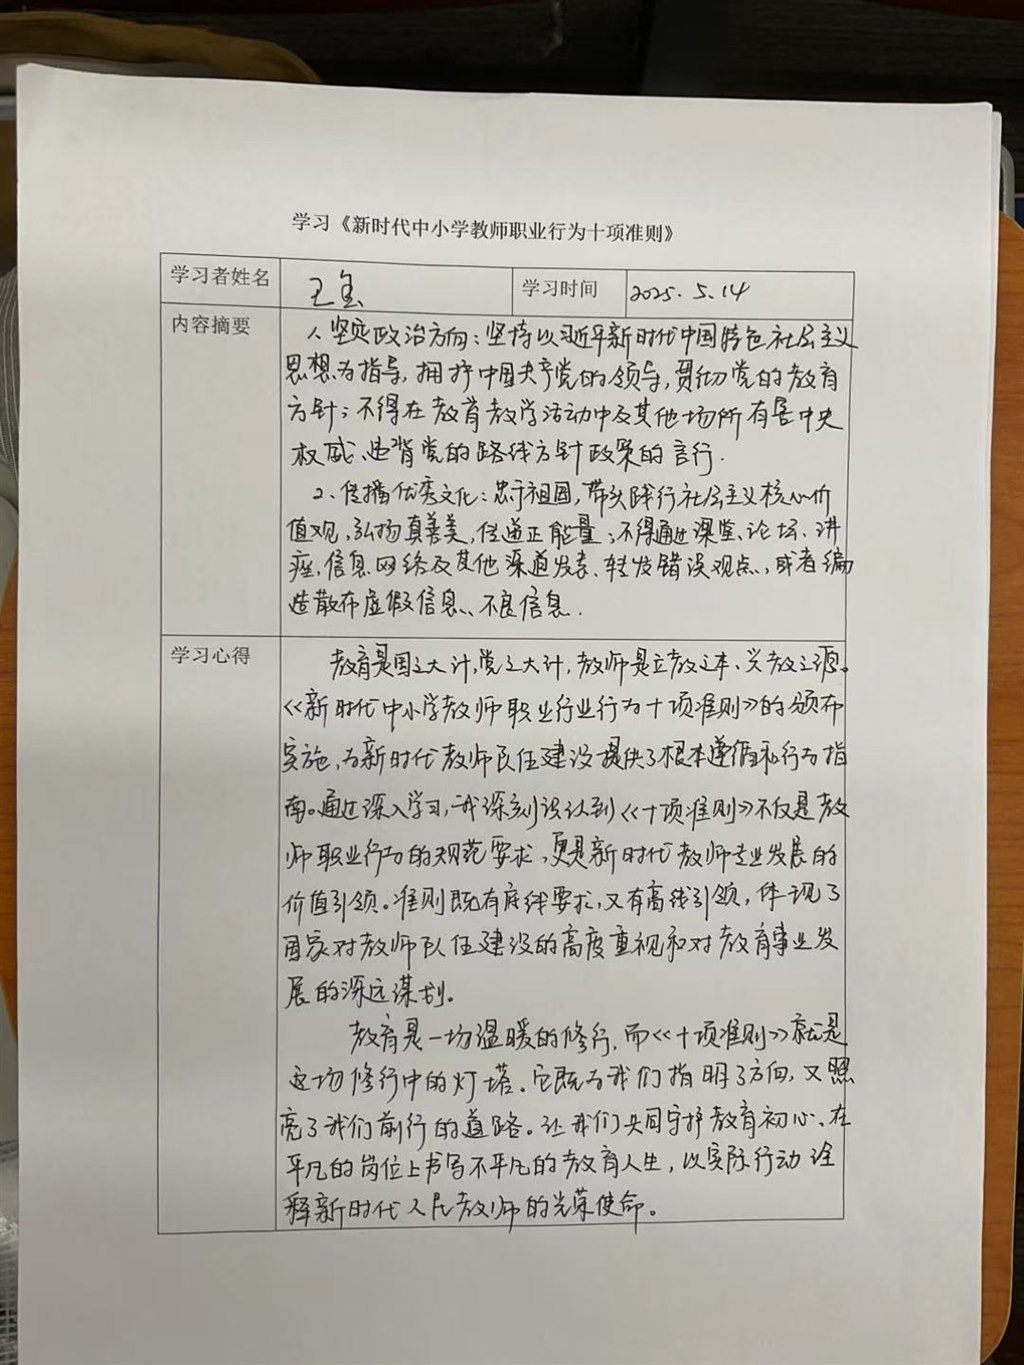 学习《新时代中小学教师职业行为十项准则》
学习者姓名 王 学习时间 2025.5.14
内容摘要
1、坚定政治方向：坚持以习近平新时代中国特色社会主义
思想为指导，拥护中国共产党的领导，贯彻党的教育
方针；不得在教育教学活动中及其他场所有害中央
权威、违背党的路线方针政策的言行.
2、传播优秀文化：忠于祖国，带头践行社会主义核心价
值观，弘扬真善美，传递正能量；不得通过课堂、论坛、讲
座、信息网络及其他渠道发表、转发错误观点，或者编
造散布虚假信息、不良信息.
学习心得
教育是国之大计，党之大计，教师是立教之本、兴教之源。
《新时代中小学教师职业行业行为十项准则》的颁布
实施，为新时代教师队伍建设提供了根本遵循和行为指
南。通过深入学习，我深刻认识到《十项准则》不仅是教
师职业行为的规范要求，更是新时代教师专业发展的
价值引领。准则既有底线要求，又有高线引领，体现了
国家对教师队伍建设的高度重视和对教育事业发
展的深远谋划。
教育是一场温暖的修行，而《十项准则》就是
这场修行中的灯塔。它既为我们指明了方向，又照
亮了我们前行的道路。让我们共同守护教育初心、在
平凡的岗位上书写不平凡的教育人生，以实际行动诠
释新时代人民教师的光荣使命。